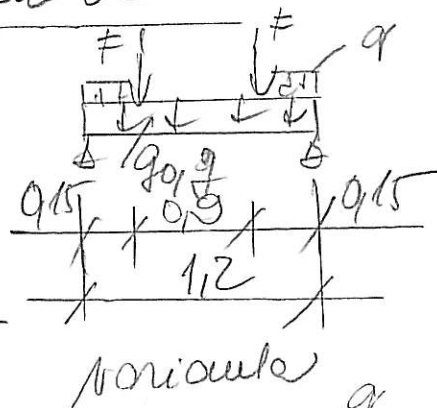 F F q
g0, g
0,15 0,9 0,15
1,2
varianta
q